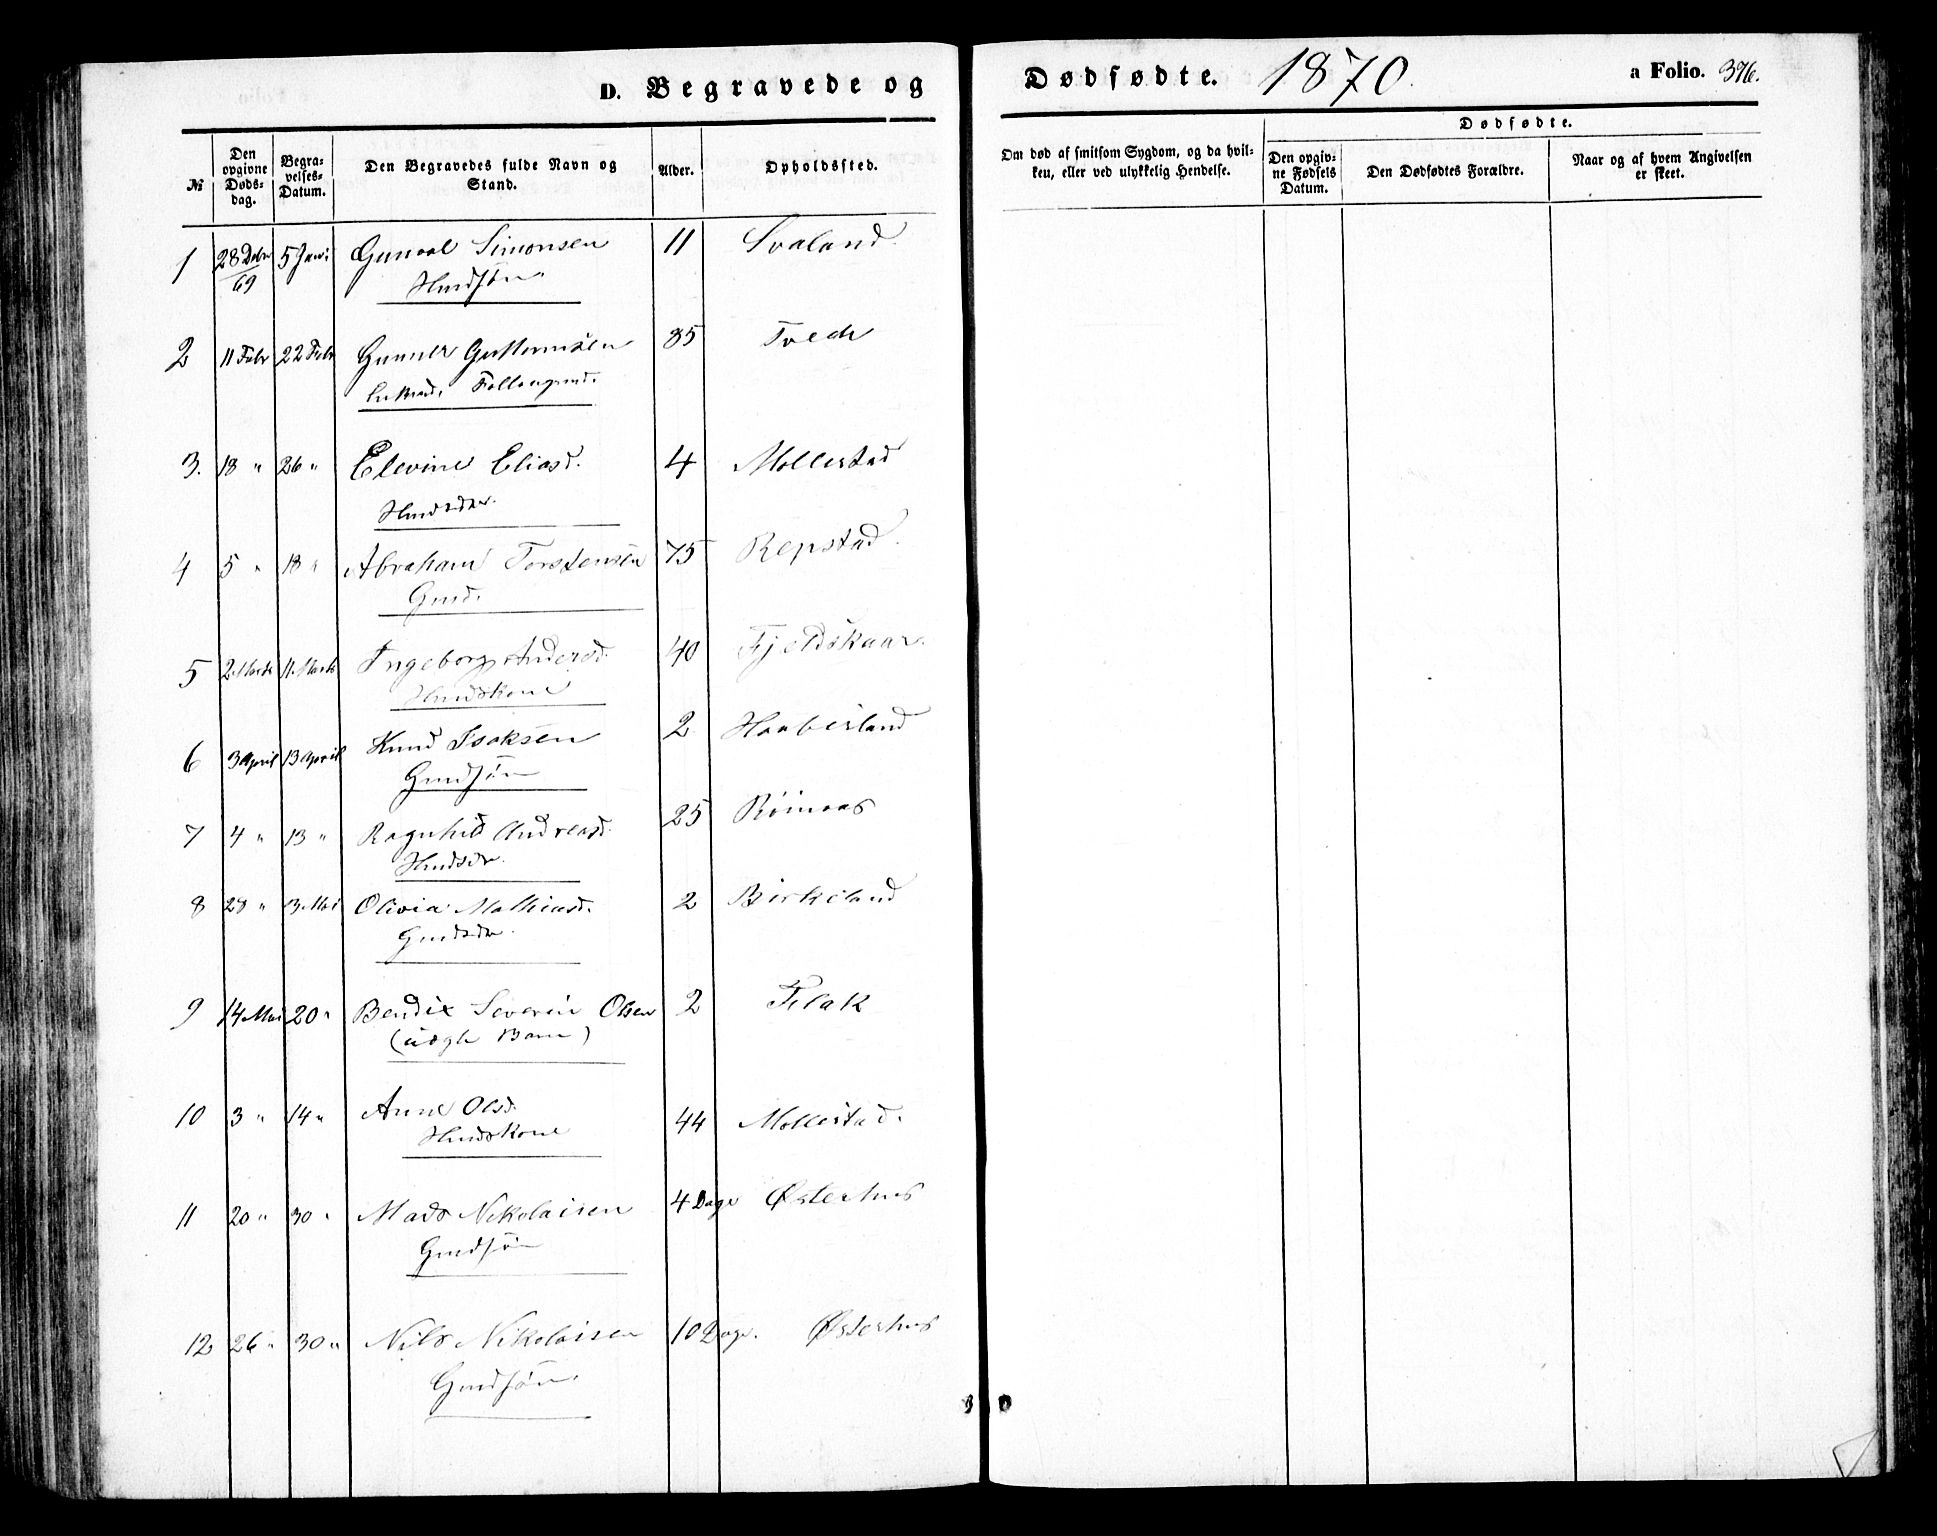 D. Begravede og Dødfødte. 1870. a Folio. 376.
Dødfødte.
№ Den opgivne Døds-dag. Begra-velses-Datum. Den Begravedes fulde Navn og Stand. Alder. Opholdssted. Om død af smitsom Sygdom, og da hvil-ken, eller ved ulykkelig Hendelse. Den opgiv-ne Fødsels Datum. Den Dødfødtes Forældre. Naar og af hvem Angivelsen er skeet.
1 28 Debr 69 5 Jan: Gunval Simonsen 11 Svaland.
Hmdsøn
2 11 Febr 22 Febr Gunner Guttormsen 85 Tvede
3. 18 " 26 " Elevine Eliasd. 4 Mollestad
Hmdsdtr.
4 5 " 18 " Abraham Torstensen 75 Repstad.
Gmd.
5 2 Marts 11. Marts Ingeborg Andersd. 40 Fjeldskaar.
Hmdskone
6 3 April 13 April Knud Isaksen 2 Haaberland
Gmdsøn
7 4 " 13 " Ragnhild Andreasd. 25 Röinaas
Hmdsdtr.
8 28 " 13. Mai Olivia Mathiasd. 2 Birkeland
Gmdsdtr.
9 14 Mai 20 " Bendix Severin Olsen 2 Flak
(uægte Barn)
10 3 " 14 " Anne Olsd. 44 Mollestad.
Hmdskone
11 20 " 30 " Mads Nikolaisen 4 Dage Østerhus
Gmdsøn
12 26 " 30 " Nils Nikolaisen 10 Dage. Østerhus
Gmdsøn.